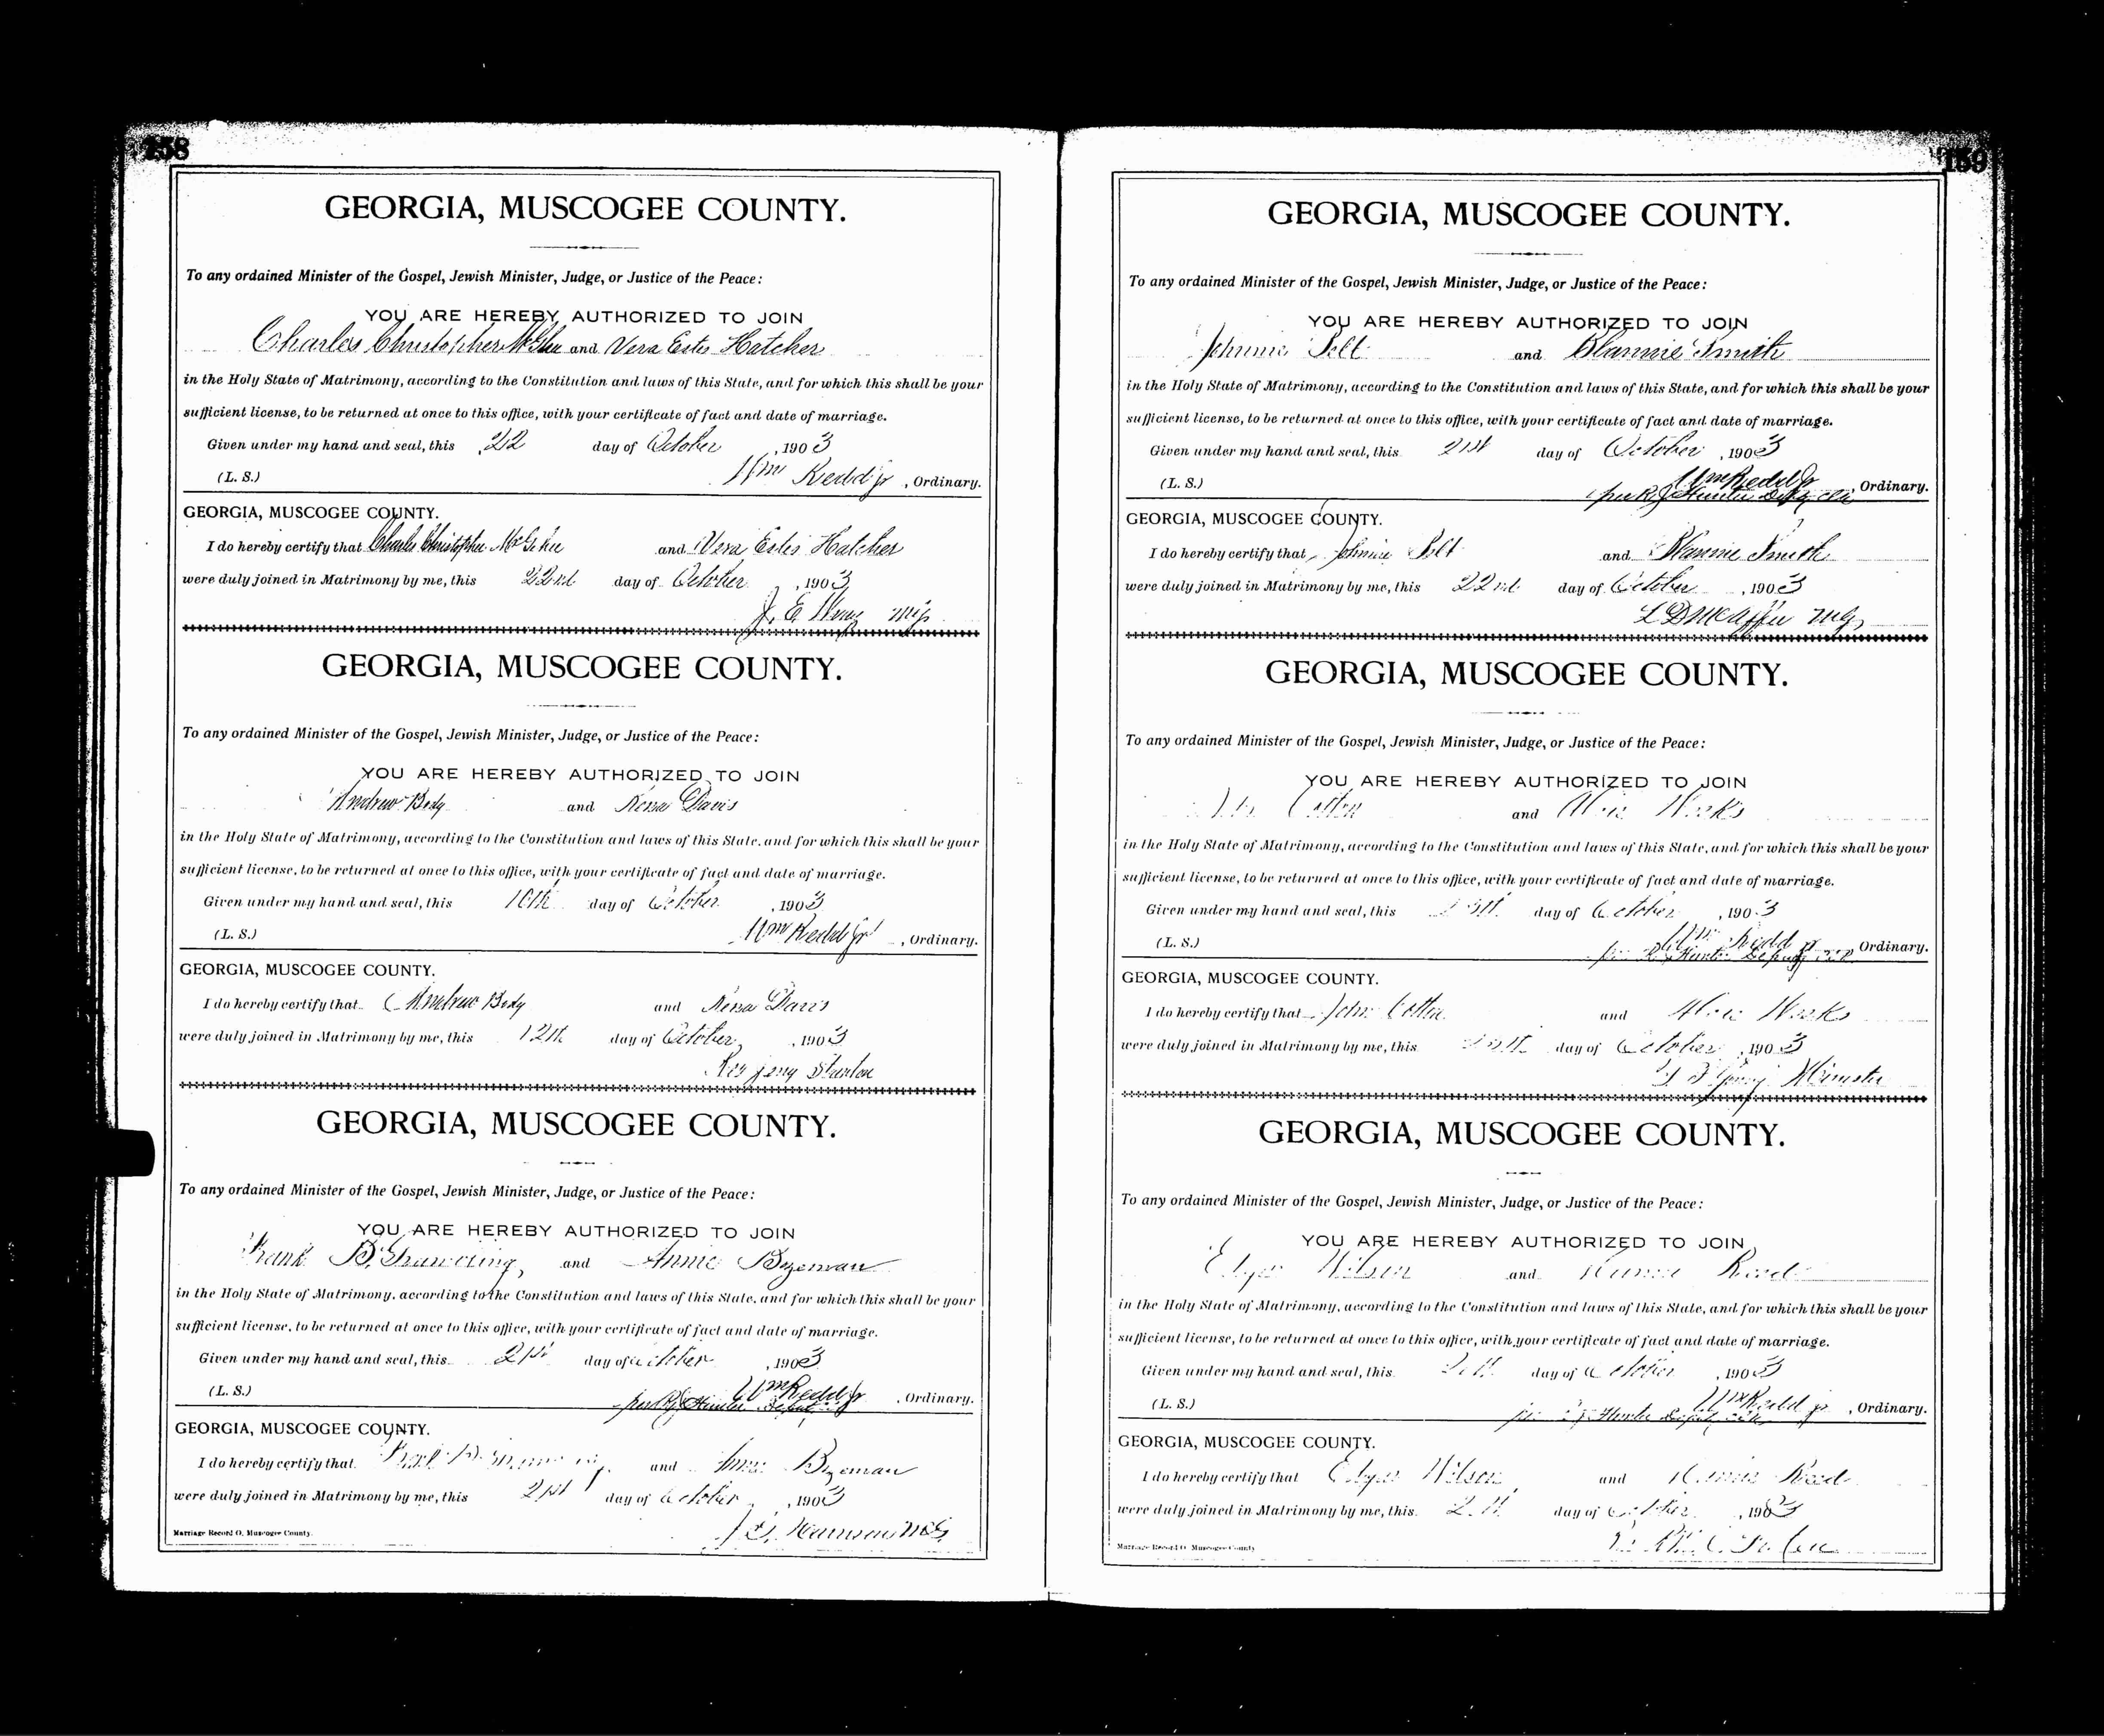 158
GEORGIA, MUSCOGEE COUNTY.
To any ordained Minister of the Gospel, Jewish Minister, Judge, or Justice of the Peace:
YOU ARE HEREBY AUTHORIZED TO JOIN
Charles Christopher McGhee and Vera Estes Hatcher
in the Holy State of Matrimony, according to the Constitution and laws of this State, and for which this shall be your
sufficient license, to be returned at once to this office, with your certificate of fact and date of marriage.
Given under my hand and seal, this 22 day of October, 1903
(L. S.) Wm Redd jr, Ordinary.
GEORGIA, MUSCOGEE COUNTY.
I do hereby certify that Charles Christopher McGehee and Vera Estes Hatcher
were duly joined in Matrimony by me, this 22nd day of October, 1903
J. E.
GEORGIA, MUSCOGEE COUNTY.
To any ordained Minister of the Gospel, Jewish Minister, Judge, or Justice of the Peace:
YOU ARE HEREBY AUTHORIZED TO JOIN
Andrew Body and Davis
in the Holy State of Matrimony, according to the Constitution and laws of this State, and for which this shall be your
sufficient license, to be returned at once to this office, with your certificate of fact and date of marriage.
Given under my hand and seal, this 10th day of October, 1903
(L. S.) Wm Redd Jr, Ordinary.
GEORGIA, MUSCOGEE COUNTY.
I do hereby certify that Andrew Body and Davis
were duly joined in Matrimony by me, this 12th day of October, 1903
Rev
GEORGIA, MUSCOGEE COUNTY.
To any ordained Minister of the Gospel, Jewish Minister, Judge, or Justice of the Peace:
YOU ARE HEREBY AUTHORIZED TO JOIN
Frank B. and Annie Bozeman
in the Holy State of Matrimony, according to the Constitution and laws of this State, and for which this shall be your
sufficient license, to be returned at once to this office, with your certificate of fact and date of marriage.
Given under my hand and seal, this 21st day of October, 1903
(L. S.) Wm Redd Jr, Ordinary.
per R J Hunter Deputy
GEORGIA, MUSCOGEE COUNTY.
I do hereby certify that and Annie Bozeman
were duly joined in Matrimony by me, this 21st day of October, 1903
Marriage Record O, Muscogee County.
159
GEORGIA, MUSCOGEE COUNTY.
To any ordained Minister of the Gospel, Jewish Minister, Judge, or Justice of the Peace:
YOU ARE HEREBY AUTHORIZED TO JOIN
Johnnie Pelt and Blannie Smith
in the Holy State of Matrimony, according to the Constitution and laws of this State, and for which this shall be your
sufficient license, to be returned at once to this office, with your certificate of fact and date of marriage.
Given under my hand and seal, this 21st day of October, 1903
(L. S.) Wm Redd Jr, Ordinary.
per R J Hunter Depty Clk
GEORGIA, MUSCOGEE COUNTY.
I do hereby certify that Johnnie Pelt and Blannie Smith
were duly joined in Matrimony by me, this 22nd day of October, 1903
L D McAffee MG
GEORGIA, MUSCOGEE COUNTY.
To any ordained Minister of the Gospel, Jewish Minister, Judge, or Justice of the Peace:
YOU ARE HEREBY AUTHORIZED TO JOIN
and
in the Holy State of Matrimony, according to the Constitution and laws of this State, and for which this shall be your
sufficient license, to be returned at once to this office, with your certificate of fact and date of marriage.
Given under my hand and seal, this day of October, 1903
(L. S.) Wm Redd Jr, Ordinary.
per R J Hunter Deputy
GEORGIA, MUSCOGEE COUNTY.
I do hereby certify that John and
were duly joined in Matrimony by me, this day of October, 1903
Minister
GEORGIA, MUSCOGEE COUNTY.
To any ordained Minister of the Gospel, Jewish Minister, Judge, or Justice of the Peace:
YOU ARE HEREBY AUTHORIZED TO JOIN
Edgar Wilson and
in the Holy State of Matrimony, according to the Constitution and laws of this State, and for which this shall be your
sufficient license, to be returned at once to this office, with your certificate of fact and date of marriage.
Given under my hand and seal, this day of October, 1903
(L. S.) Wm Redd jr, Ordinary.
per R J Hunter Deputy Clk
GEORGIA, MUSCOGEE COUNTY.
I do hereby certify that Edgar Wilson and
were duly joined in Matrimony by me, this day of October, 1903
Marriage Record O, Muscogee County